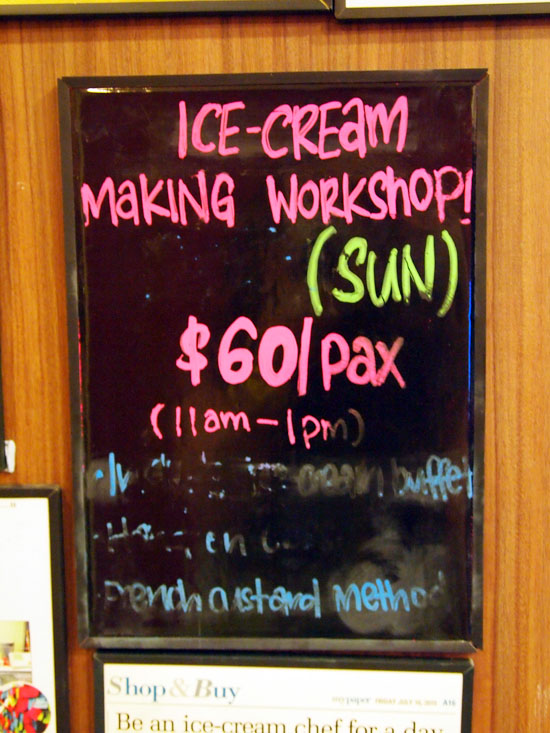 ICE-CREAM
MAKING WORKSHOP!
(SUN)
$60/pax
(11am-1pm)
ice cream buffet
French custard method
Shop & Buy
mypaper FRIDAY JULY A16
Be an ice-cream chef for a day